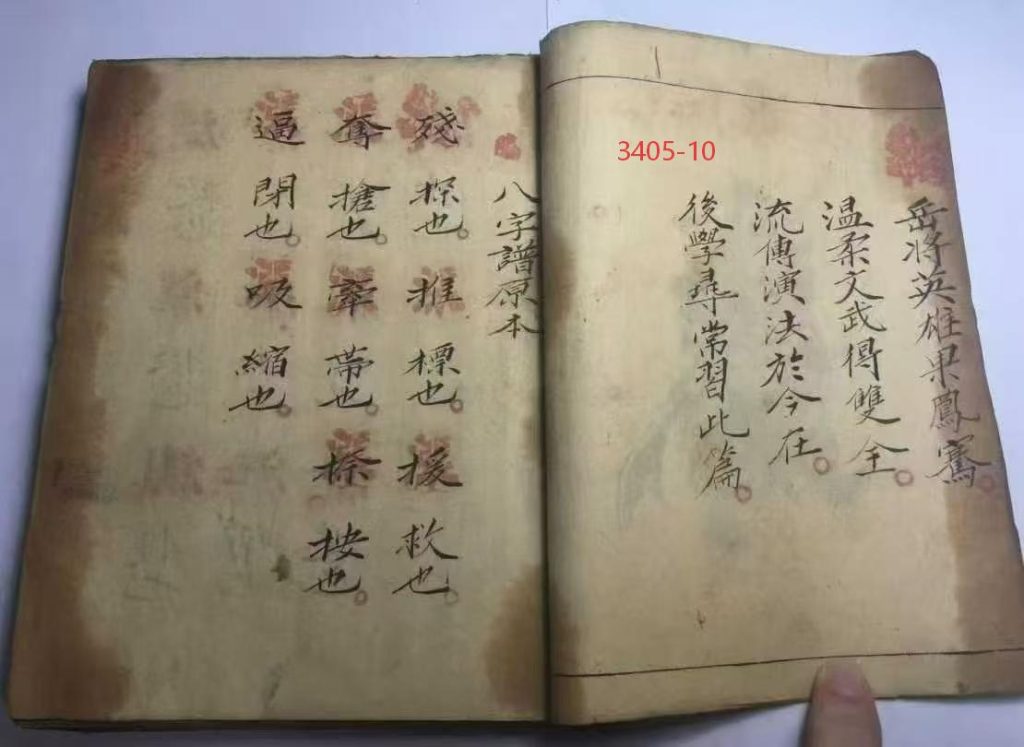 3405-10
岳將英雄果鳳騫
温柔文武得雙全
流傳演法於今在
後學尋常習此篇
八字譜原本
殘 探也 推 標也 援 救也
奪 搶也 牽 帶也 捺 按也
逼 閉也 吸 縮也